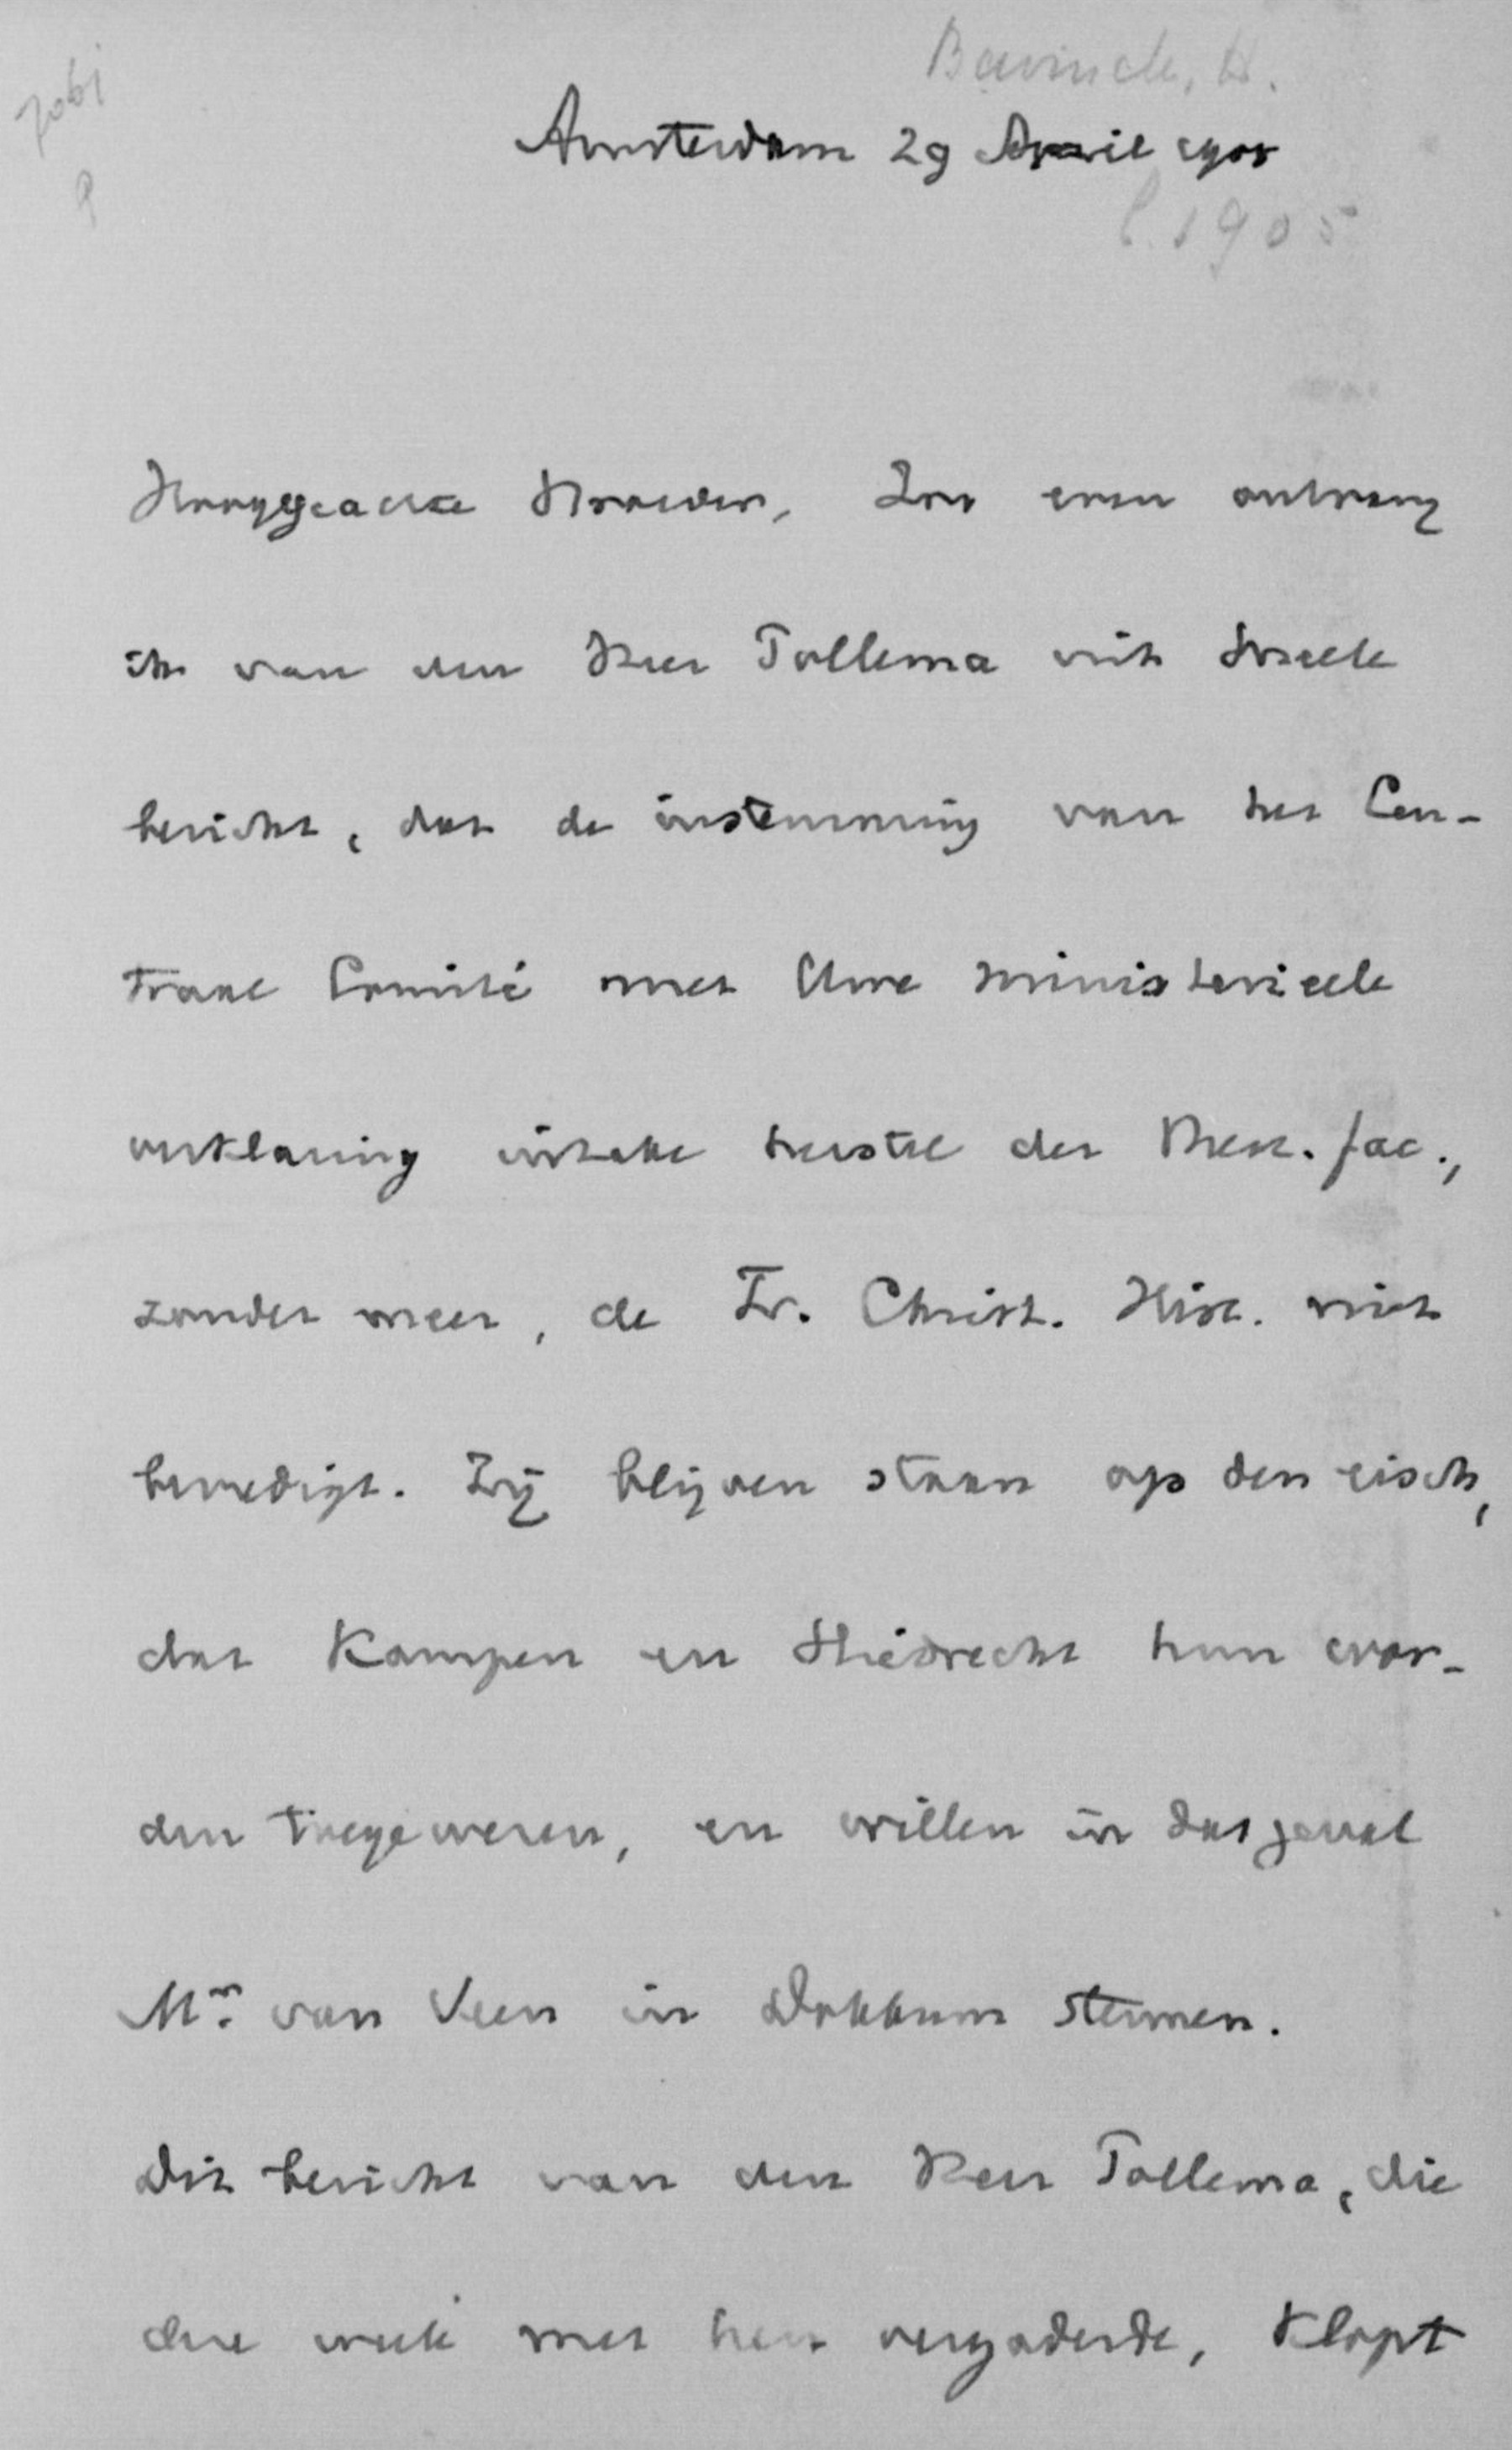 Bavinck, H.
7061
Amsterdam 29 April 1905
1905
Hooggeachte Broeder, Zoo even ontvang
ik van den Heer Tollema uit Sneek
bericht, dat de instemming van het Cen-
traal Comité met Uwe ministerieele
verklaring inzake herstel der theol. fac.,
zonder meer, de Fr. Christ. Hist. niet
bevredigt. Zij blijven staan op den eisch,
dat Kampen en Sliedrecht hun wor-
den toegewezen, en willen in dat geval
Mr. van Veen in Dokkum steunen.
Dit bericht van den Heer Tollema, die
deze week met hen vergaderde, klopt